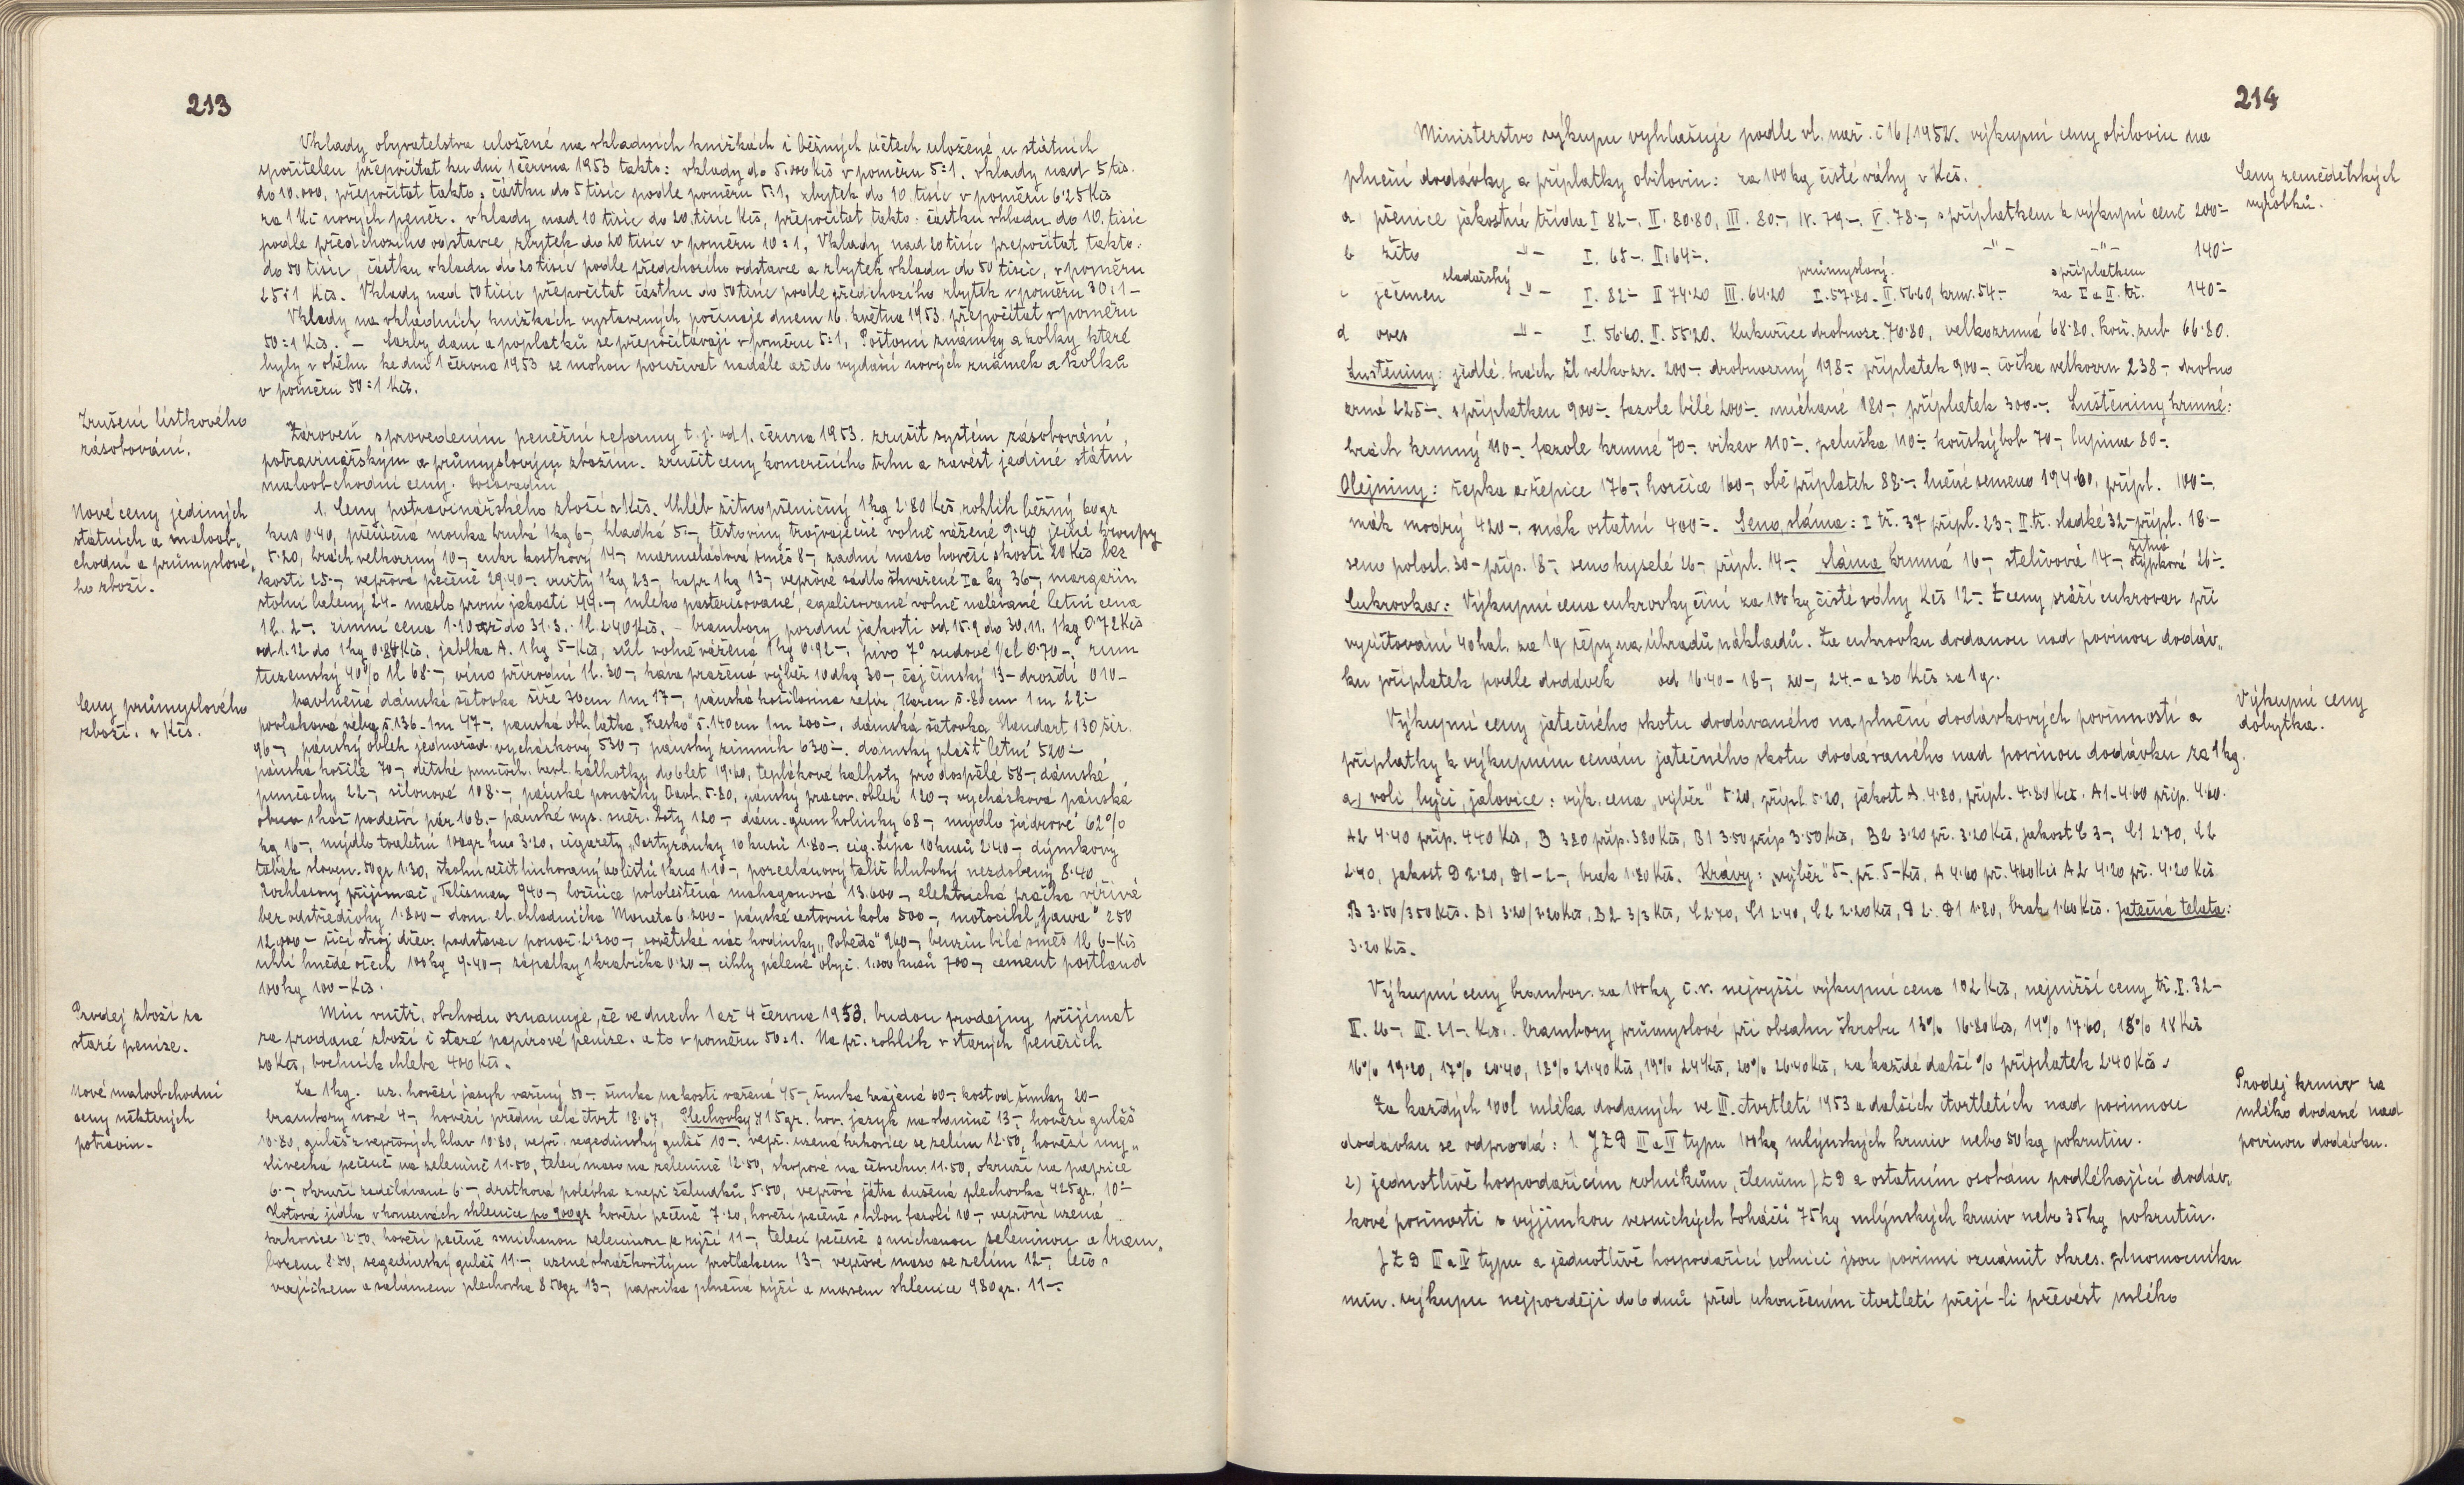 213
Vklady obyvatelstva uložené na vkladních knížkách i běžných účtech uložené u státních
spořitelen přepočítat ku dni 1 června 1953 takto: vklady do 5.000 Kčs v poměru 5:1. vklady nad 5 tis.
do 10.000, přepočítat takto: částku do 5 tisíc podle poměru 5:1, zbytek do 10 tisíc v poměru 6·25 Kčs
za 1 Kč nových peněz. vklady nad 10 tisíc do 20 tisíc Kčs, přepočítat takto: částku vkladu do 10. tisíc
podle předchozího odstavce, zbytek do 20 tisíc v poměru 10:1, Vklady nad 20 tisíc přepočítat takto:
do 50 tisíc, částku vkladu do 20 tisíc podle předchozího odstavce a zbytek vkladu do 50 tisíc, v poměru
25:1 Kčs. Vklady nad 50 tisíc přepočítat částku do 50 tisíc podle předchozího zbytek v poměru 30:1 –
Vklady na vkladních knížkách vystavených počínaje dnem 16. května 1953. přepočítat v poměru
50:1 Kčs. – Sazby daní a poplatků se přepočítávají v poměru 5:1, Poštovní známky a kolky které
byly v oběhu ke dni 1 června 1953 se mohou používat nadále až do vydání nových známek a kolků
v poměru 50:1 Kčs.
Zrušení lístkového
zásobování.
Zároveň s provedením peněžní reformy t.j. od 1. června 1953. zrušit systém zásobování,
potravinářským a průmyslovým zbožím. zrušit ceny komerčního trhu a zavést jediné státní
maloobchodní ceny.
Nové ceny jediných
státních a maloob„
chodní a průmyslové„
ho zboží.
1. Ceny potravinářského zboží v Kčs. Chléb žitnopšeničný 1 kg 2·80 Kčs, rohlík běžný 60 gr
kus 0·40, pšeničná mouka hrubá 1 kg 6–, hladká 5·–, těstoviny trojvaječné volně vážené 9·40 ječné kroupy
5·20, hrách velkozrný 10–, cukr kostkový 14–, marmeládová směs 8–, zadní maso hovězí s kostí 20 Kčs bez
kosti 25·–, vepřová pečeně 29·40–, vuřty 1 kg 23–, kapr 1 kg 13–, vepřové sádlo škvařené Ia kg 36–, margarin
stolní balený 24– máslo první jakosti 44.–, mléko pasterisované, egalisované volně nalévané letní cena
1 l. 2–. zimní cena 1·10 až do 31.3.. 1 l. 2·40 Kčs. – brambory, pozdní jakosti od 15.9 do 30.11. 1 kg 0·72 Kčs
od 1.12 do 1 kg 0·84 Kčs, jablka A. 1 kg 5– Kčs, sůl volně vážená 1 kg 0·92–. pivo 7° sudové ½ l 0·70–, rum
tuzemský 40% 1 l 68–, víno přírodní 1 l. 30–, káva pražená výběr 10 dkg 30–, čaj čínský 13– droždí 010–
Ceny průmyslového
zboží. v Kčs.
bavlněná dámská šatovka šíře 70 cm 1 m 17–, pánská košilovina zefír, Karen š. 80 cm 1 m 22–
povlaková š. 136 – 1 m 47–. pánská obl. látka „Fresko“ š. 140 cm 1 m 200–, dámská šatovka Standart 130 šír.
96–, pánský oblek jednořad. vycházkový 530–, pánský zimník 630–. dámský plášť letní 520–
pánská košile 70–, dětské punčoch. bavl. kalhotky do 6 let 19·60, teplákové kalhoty pro dospělé 58–, dámské
punčochy 22–, silonové 108–, pánské ponožky bavl. 5·80, pánský pracov. oblek 120–, vycházková pánská
obuv podešví pár 168.– pánské vys. boty 120– dám. gum holinky 68–, mýdlo jádrové 62%
kg 16–, mýdlo toaletní 100 gr kus 3·20, cigarety „Partyzánky 10 kusů 1·80–. cig. Lípa 10 kusů 2·40– dýmkový
tabák sloven. 50 gr 1·30, školní sešit linkovaný 60 listů 1 kus 1·10–, porcelánový talíř hluboký nezdobený 8·40
Rozhlasový přijímač „Talisman 940– ložnice pololeštěná mahagonová 13.600–, elektrická pračka vířivá
bez odstředivky 1·800– dom. el. chladnička Moneta 6.200– pánské cestovní kolo 500–, motocikl „Jawa“ 250
12.000– šicí stroj dřev. podstavec 2·300–, sovětské nár. hodinky „Poběda“ 960–, benzin bílá směs 1 l 6– Kčs
uhlí hnědé ořech 100 kg 9·40–, zápalky 1 krabička 0·20–, cihly pálené obyč. 1.000 kusů 700–, cement portland
100 kg 100– Kčs.
Prodej zboží za
staré peníze.
Min. vnitř. obchodu oznamuje, že ve dnech 1 až 4 června 1953, budou prodejny přijímat
za prodané zboží i staré papírové peníze. a to v poměru 50:1. Na př. rohlík v starých penězích
20 Kčs, bochník chleba 400 Kčs.
Nové maloobchodní
ceny některých
potravin–
Za 1 kg. uz. hovězí jazyk vařený 50–, šunka na kosti vařená 45–, šunka krájená 60–, kost od šunky 20–
brambory nové 4–, hovězí přední celá čtvrt 18·67, Plechovky 415 gr. hov. jazyk na slanině 13–, hovězí guláš
10·80, guláš z vepřových hlav 10·80, vepř. segedínský guláš 10–. vepř. uzená krkovice se zelím 12·50, hovězí my„
slivecká pečeně na zelenině 11·50, telecí maso na zelenině 12·50, skopové na česneku. 11·50, okruží na paprice
6·–, okruží zadělávané 6–, drštková polévka z vepř. žaludků 5·50, vepřová játra dušená plechovka 425 gr. 10–
Hotová jídla v konservách sklenice po 900 gr hovězí pečeně 7·20, hovězí pečeně s bílou fazolí 10–, vepřová uzená
krkovice 12·50, hovězí pečeně s míchanou zeleninou a rýží 11–, telecí pečeně s míchanou zeleninou a bram„
borem 8·50, segedínský guláš 11–, uzené s hráškovitým protlakem 13–, vepřové maso se zelím 12–, lečo s
vajíčkem a salámem plechovka 850 gr 13–, paprika plněná rýží a masem sklenice 980 gr. 11–.
214
Ministerstvo výkupu vyhlašuje podle vl. nař. č 16/1952. výkupní ceny obilovin na
Ceny zemědělských
výrobků.
plnění dodávky a příplatky obilovin: za 100 kg čisté váhy v Kčs.
a pšenice jakostní třída I 82–. II. 80·80, III. 80–, IV. 79–. V. 78–, s příplatkem k výkupní ceně 200–
b žito –"– I. 65–. II. 64–. –"– –"– 140–
sladařský průmyslový. s příplatkem
c ječmen –"– I. 82– II 74·20 III. 64·20 I. 57·80– II. 56·60, krm. 54.– za I a II. tř. 140–
d oves –"– I. 56·60. II. 55·20. Kukuřice drobnozr. 70·80, velkozrnná 68·80. koň. zub 66·80.
Luštěniny: jedlé. hrách žl velkozr. 200–. drobnozrný 198–. příplatek 900–. čočka velkozrn 238–, drobno
zrná 225–. s příplatkem 900–. fazole bílé 200–. míchané 180–, příplatek 300–. Luštěniny krmné:
hrách krmný 110–. fazole krmné 70–. vikev 110–. peluška 110– koňský bob 70–, lupina 80–.
Olejniny: řepka a řepice 176–, hořčice 160–, obě příplatek 88–. lněné semeno 194·60, přípl. 100–.
mák modrý 420–, mák ostatní 400–. Seno, sláma: I tř. 37 přípl. 23–, II. tř. sladké 32– přípl. 18–
žitná
seno polosl. 30– příp. 18–, seno kyselé 26–, přípl. 14–, sláma krmná 16–, stelivová 14–, stýpková 26–.
Cukrovka: Výkupní cena cukrovky činí za 100 kg čisté váhy Kčs 12–. Z ceny sráží cukrovar při
vyúčtování 40 hal. za 1 q řepy na úhradu nákladů. Za cukrovku dodanou nad povinou dodáv„
ku příplatek podle dodávek od 16·40 – 18–, 20–, 24.– a 30 Kčs za 1 q.
Výkupní ceny
dobytka.
Výkupní ceny jatečného skotu dodávaného na plnění dodávkových povinností a
příplatky k výkupním cenám jatečného skotu dodávaného nad povinou dodávku za 1 kg.
a) voli, býci, jalovice: výk. cena „výběr“ 5·20, přípl. 5·20, jakost A. 4·80, přípl. 4·80 Kčs. A1– 4·60 příp. 4·60.
A2 4·40 příp. 4·40 Kčs, B 3·80 příp. 3·80 Kčs, B1 3·50 příp 3·50 Kčs, B2 3·20 př. 3·20 Kčs, jakost C 3–, C1 2·70, C2
2·40, jakost D 2·20, D1–2–, brak 1·80 Kčs. Krávy: „výběr“ 5–, př. 5– Kčs, A 4·60 př. 4·60 Kčs A2 4·20 př. 4·20 Kčs
B 3·50/3·50 Kčs. B1 3·20/3·20 Kčs, B2 3/3 Kčs, C 2·70, C1 2·40, C2 2·20 Kčs, D 2–. D1 1·80, brak 1·60 Kčs. Jatečná telata:
3·20 Kčs.
Výkupní ceny brambor. za 100 kg č.v. nejvyšší výkupní cena 102 Kčs, nejnižší ceny tř. I. 32–
II. 26–, III. 21–. Kčs.. brambory průmyslové při obsahu škrobu 13% 16·80 Kčs, 14% 17·60, 15% 18 Kčs
16% 19·20, 17% 20·40, 18% 21·40 Kčs, 19% 24 Kčs, 20% 26·40 Kčs, za každé další % příplatek 2·40 Kčs.
Prodej krmiv za
mléko dodané nad
povinou dodávku.
Za každých 100 l mléka dodaných ve III. čtvrtletí 1953 a dalších čtvrtletích nad povinnou
dodávku se odprodá: 1. JZD III a IV typu 100 kg mlýnských krmiv nebo 50 kg pokrutin.
2) jednotlivě hospodařícím rolníkům, členům JZD a ostatním osobám podléhající dodáv„
kové povinosti s výjimkou vesnických boháčů 75 kg mlýnských krmiv nebo 35 kg pokrutin.
JZD III a IV typu a jednotlivě hospodařící rolníci jsou povinni oznámit okres. zplnomocníku
min. výkupu nejpozději do 6 dnů před ukončením čtvrtletí přejí-li převést mléko